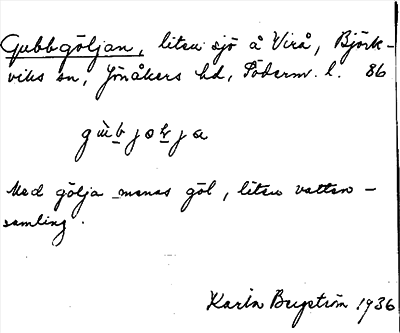 Gubbgöljan, liten sjö å Virå, Björk-
viks sn, Jönåkers hd, Söderm. l. 86
Med gölja menas göl, liten vatten-
samling.
Karin 1936